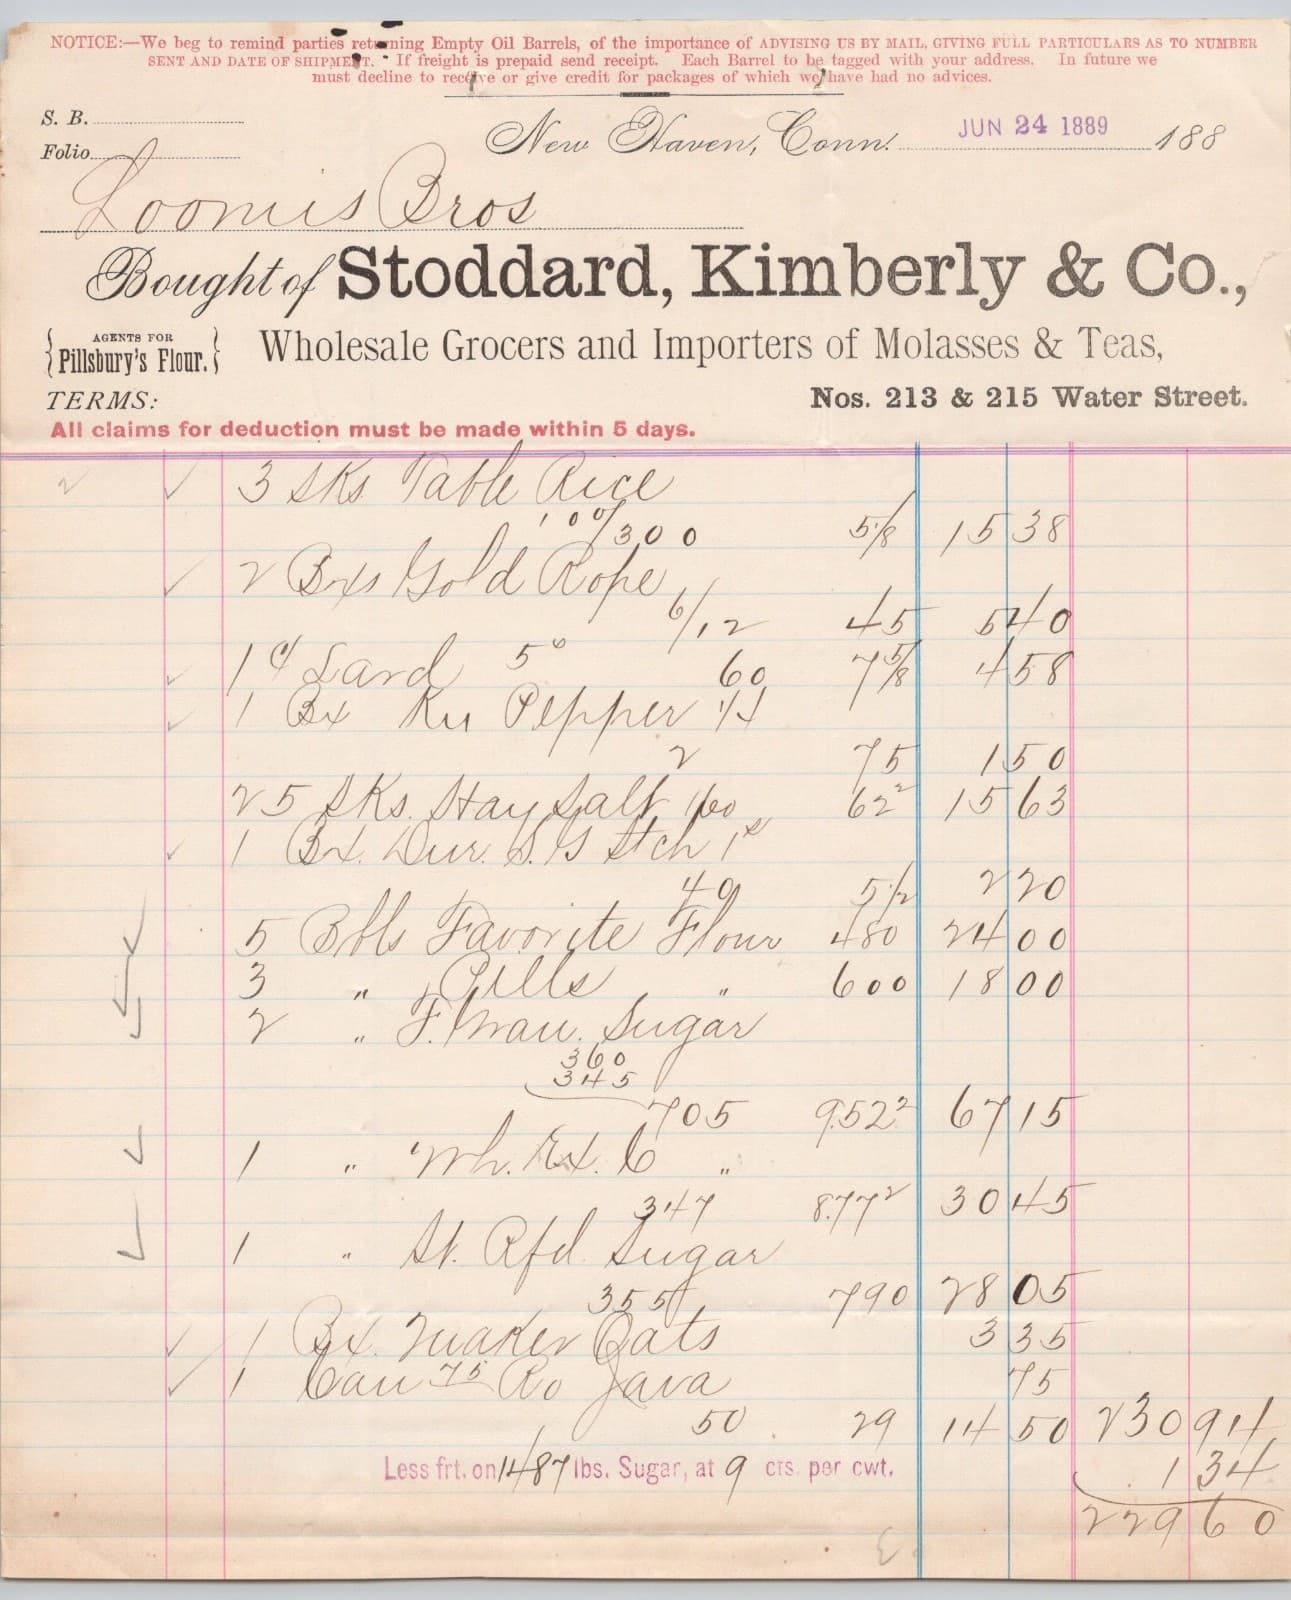 NOTICE:—We beg to remind parties returning Empty Oil Barrels, of the importance of ADVISING US BY MAIL, GIVING FULL PARTICULARS AS TO NUMBER
SENT AND DATE OF SHIPMENT. If freight is prepaid send receipt. Each Barrel to be tagged with your address. In future we
must decline to receive or give credit for packages of which we have had no advices.
S. B.
New Haven, Conn. JUN 24 1889 188
Folio
Loomis Bros
Bought of Stoddard, Kimberly & Co.,
AGENTS FOR
Pillsbury's Flour.
Wholesale Grocers and Importers of Molasses & Teas,
TERMS:
Nos. 213 & 215 Water Street.
All claims for deduction must be made within 5 days.
3 Sks Table Rice
100/300 5 1/8 15 38
2 Bxs Gold Rope
6/12 45 5 40
1 Lard 50 60 7 5/8 4 58
1 Bx Pepper
2 75 1 50
25 Sks. Hay Salt 160 62 2 15 63
1 Bx. Dur. S. G Stch
40 5 1/2 2 20
5 Bbls Favorite Flour 480 24 00
3 " Pills " 600 18 00
2 " F. Sugar
360
345
705 9.52 2 67 15
1 " Wh. Ex. C "
347 8.77 2 30 45
1 " St. Rfd. Sugar
355 790 28 05
1 Bx. Quaker Oats 3 35
1 Can 75 Ro Java 75
50 29 14 50 230 94
Less frt. on 1487 lbs. Sugar, at 9 cts. per cwt. 1 34
229 60